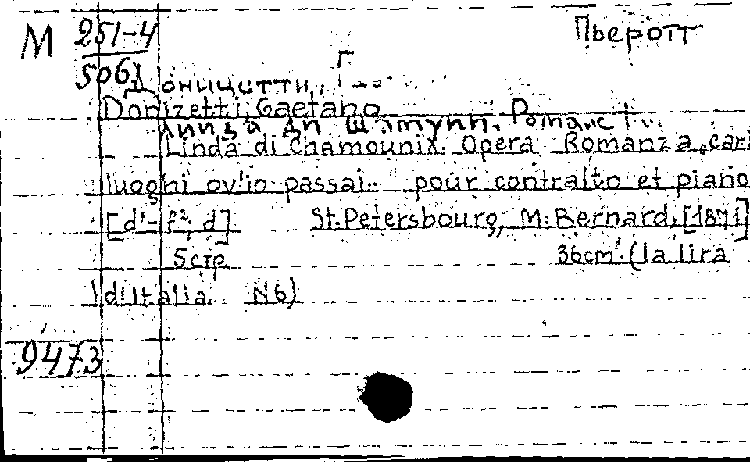 М 251-4 Пьеротт
5061
Доницетти, Г
Donizetti, Gaetano
Линда ди Шамуни. Романс
Linda di Chamounix. Opera Romanza. cari
luoghi ov'io passai.. pour contralto et piano
[d'-f², d] St.Petersbourg, M. Bernard, [1871]
5 стр 36cm. (La lira
d'Italia. N6)
9473